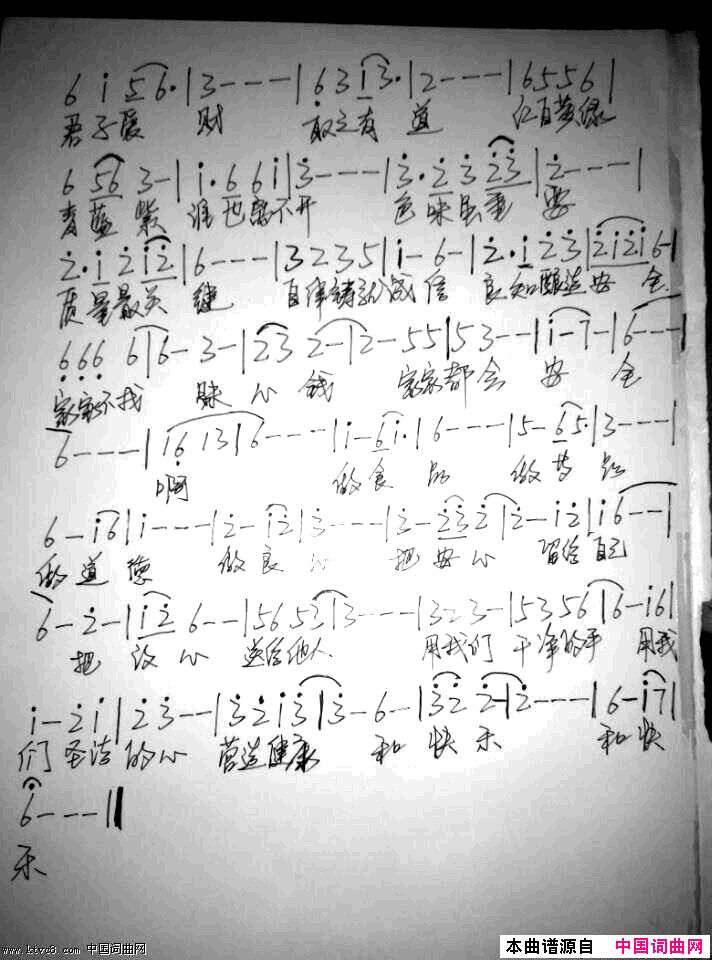 6 i 5 6· | 3 - - - - | 6 3 i 3· | 2 - - - - | 6 5 5 6 |
君子爱 财 取之有 道 红白黄绿
6 5 6 3 - | i· 6 6 i | 3 - - - - | 3· 2 3 2 3 | 2 - - - - |
青蓝 紫 谁也离不开 色味虽重 要
2· i 2 i 2 | 6 - - - | 3 2 3 5 | i - 6 - | 2· i 2 3 | 2 i 2 i 6 - |
质量最关 键 自律铸就诚信 良知酿造安 全
6 6 6 6 | 6 - 3 - | 2 3 2 - | 2 - 5 5 | 5 3 - - | i - 7 - | 6 - - - |
家家不找 昧心 钱 家家都会 安 全
6 - - - - | i 6 i 3 | 6 - - - - | i - 6 i· | 6 - - - | 5 - 6 5· | 3 - - - |
啊 做食 品 做
6 - i 6 | i - - - - | 2 - i 2 | 3 - - - - | 3 - 2 3 2 | 2 - i 2 | i 6 - - |
做道 德 做良 心 把安心 留给自己
6 - 2 - | i 2 6 - - | 5 6 5 3 | 3 - - - - | 3 2 3 - | 5 3 5 6 | 6 - i 6 |
把 心 送给他人 用我们 干净的手 用我
i - 2 i | 2 3 - - | 3 2 i 3 | 3 - 6 - | 3 2 2 - | 2 - - - | 6 - i 7 |
们圣洁的心 营造健康 和 快 乐 和快
6 - - - ||
乐
www.ktvc8.com 中国词曲网
本曲谱源自 中国词曲网